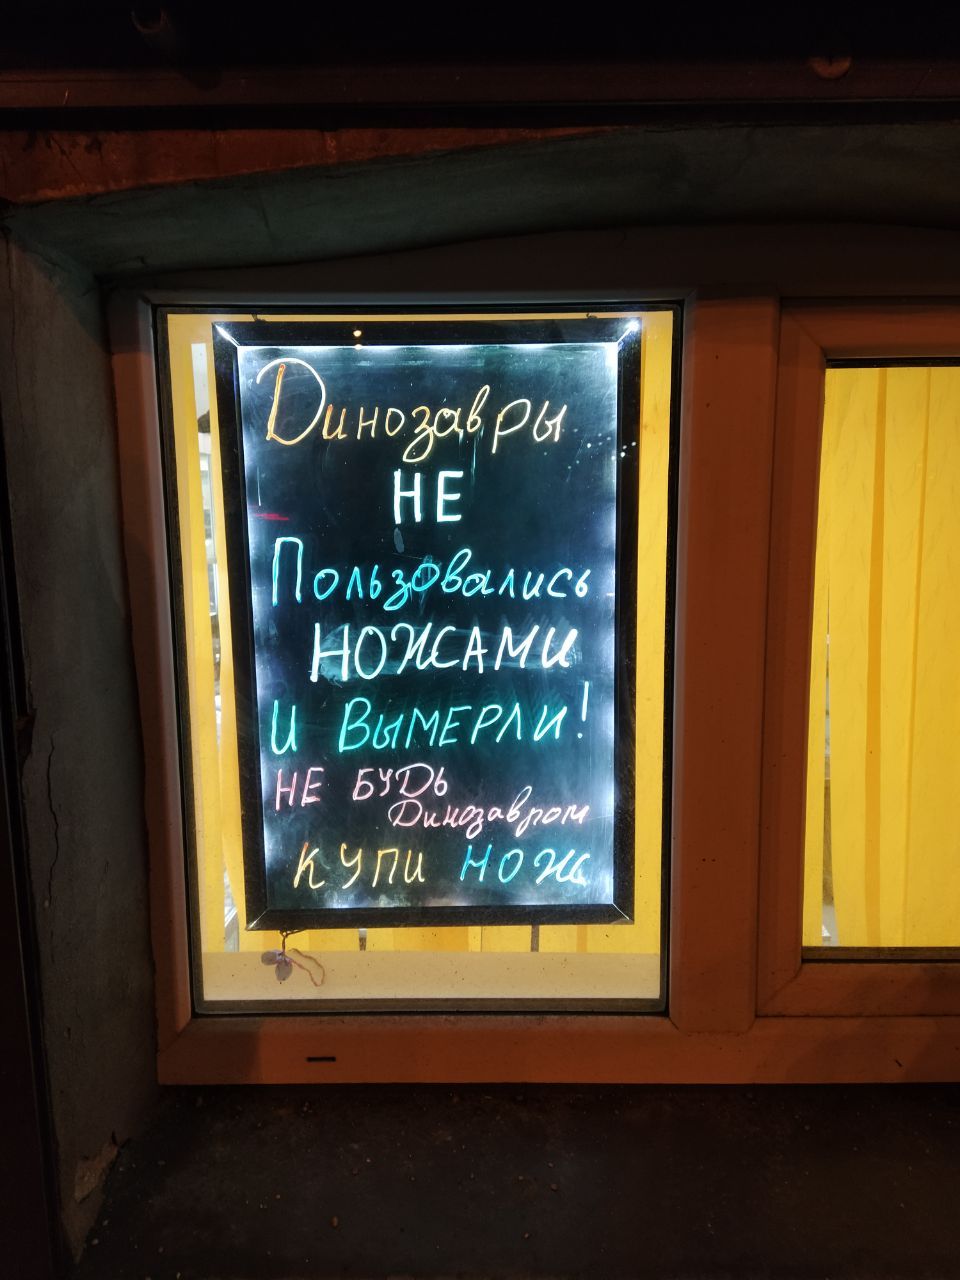 Динозавры
НЕ
Пользовались
НОЖАМИ
И ВЫМЕРЛИ!
НЕ БУДЬ
Динозавром
КУПИ НОЖ